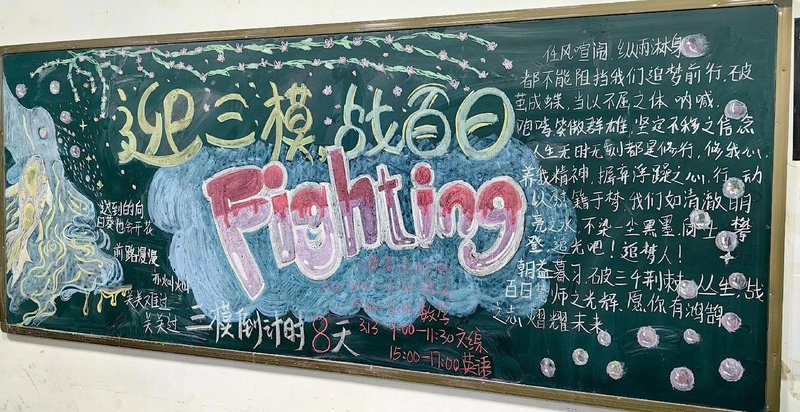 迎三模,战百日
Fighting
迟到的向
日葵也会开花
前路漫漫
亦灿灿
关关难过
关关过
三模倒计时8天
数学
3.13 9:00-11:30 文综
15:00-17:00 英语
任风喧闹,纵雨淋身
都不能阻挡我们追梦前行,破
茧成蝶,当以不屈之体 呐喊,
咆哮 笑傲群雄,坚定不移之信念
人生无时无刻都是修行,修我心,
养我精神,摒弃浮躁之心,行动
以对 籍于梦,我们如清澈明
亮之水,不染一尘黑墨,
登,追光吧!追梦人!
朝益暮习,破三千荆棘 丛生,战
百日 师之光辉,愿你有鸿鹄
之志 熠耀未来